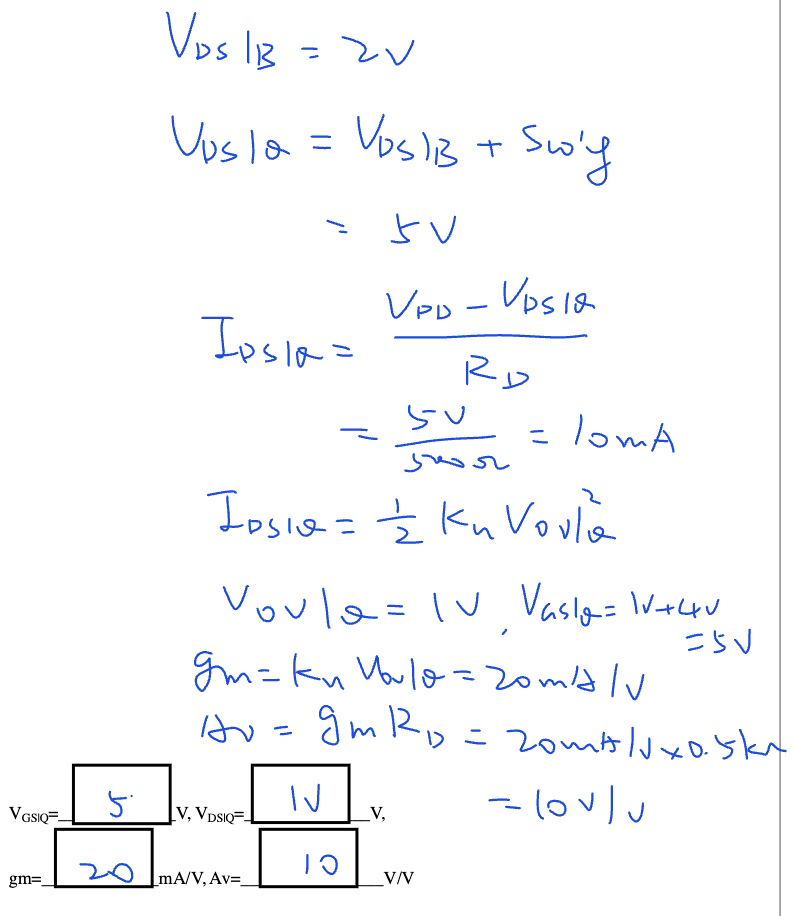 V_DS|B = 2V
V_DS|Q = V_DS|B + Swing
= 5V
I_DS|Q = (V_DD - V_DS|Q) / R_D
= 5V / 500Ω = 10mA
I_DS|Q = 1/2 k_n V_OV|Q^2
V_OV|Q = 1V, V_GS|Q = 1V+4V
= 5V
gm = k_n V_OV|Q = 20mA/V
Av = gm R_D = 20mA/V × 0.5kΩ
= 10V/V
V_GS|Q=_ 5 _V, V_DS|Q=_ 1V _V,
gm=_ 20 _mA/V, Av=_ 10 _V/V